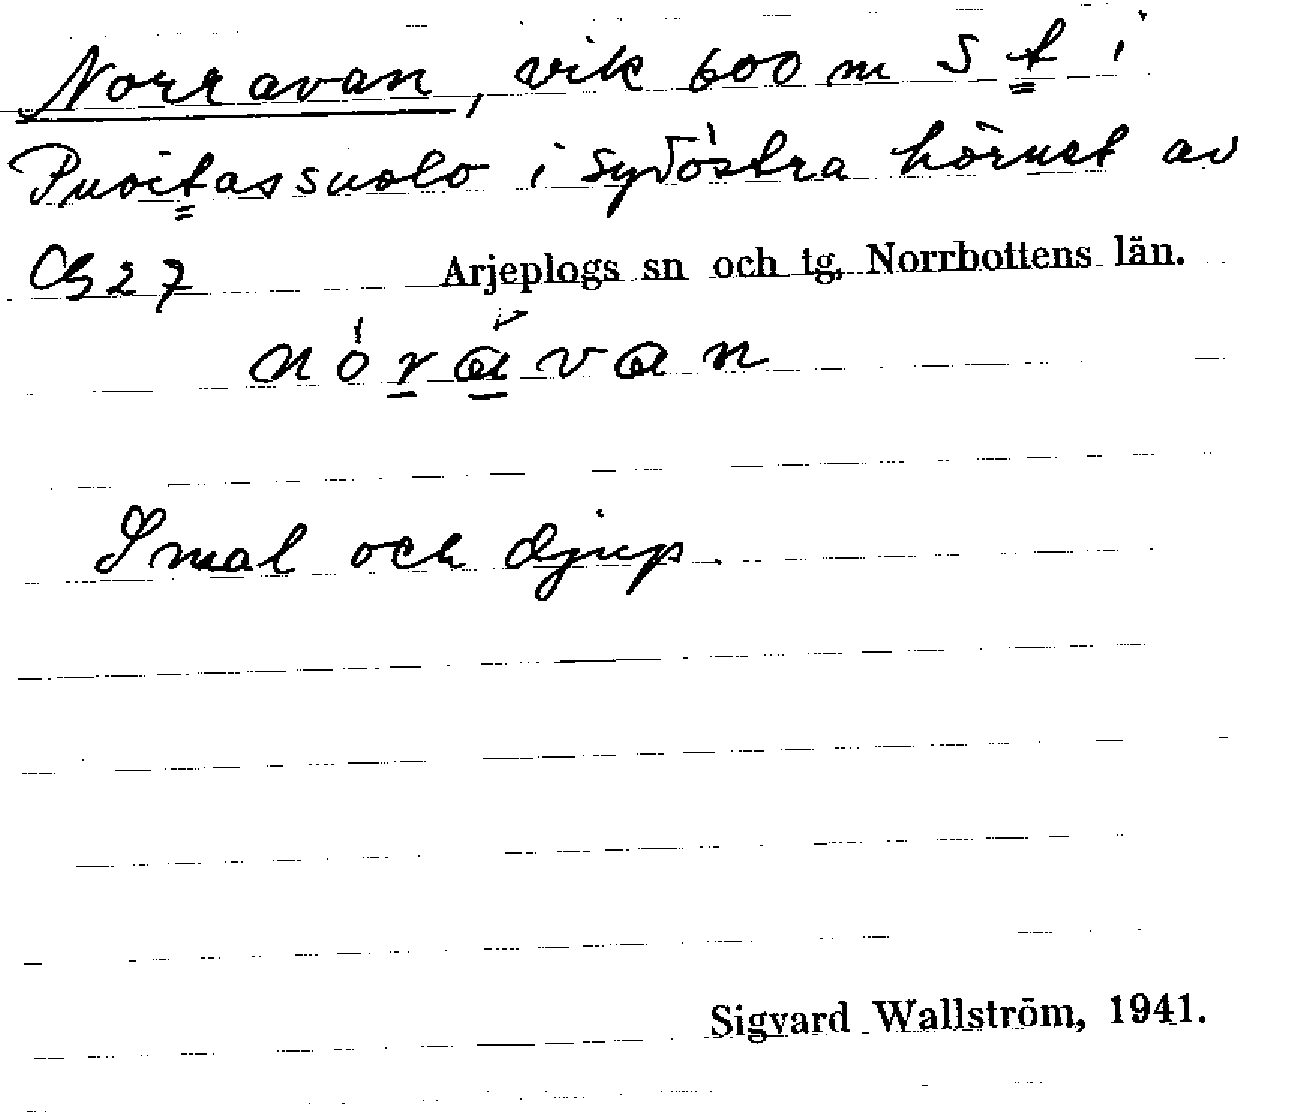 Norravan, vik 600 m S t i
Puoitassuolo i sydöstra hörnet av
Cb 27 Arjeplogs sn och tg, Norrbottens län.
nóravan
Smal och djup.
Sigvard Wallström, 1941.